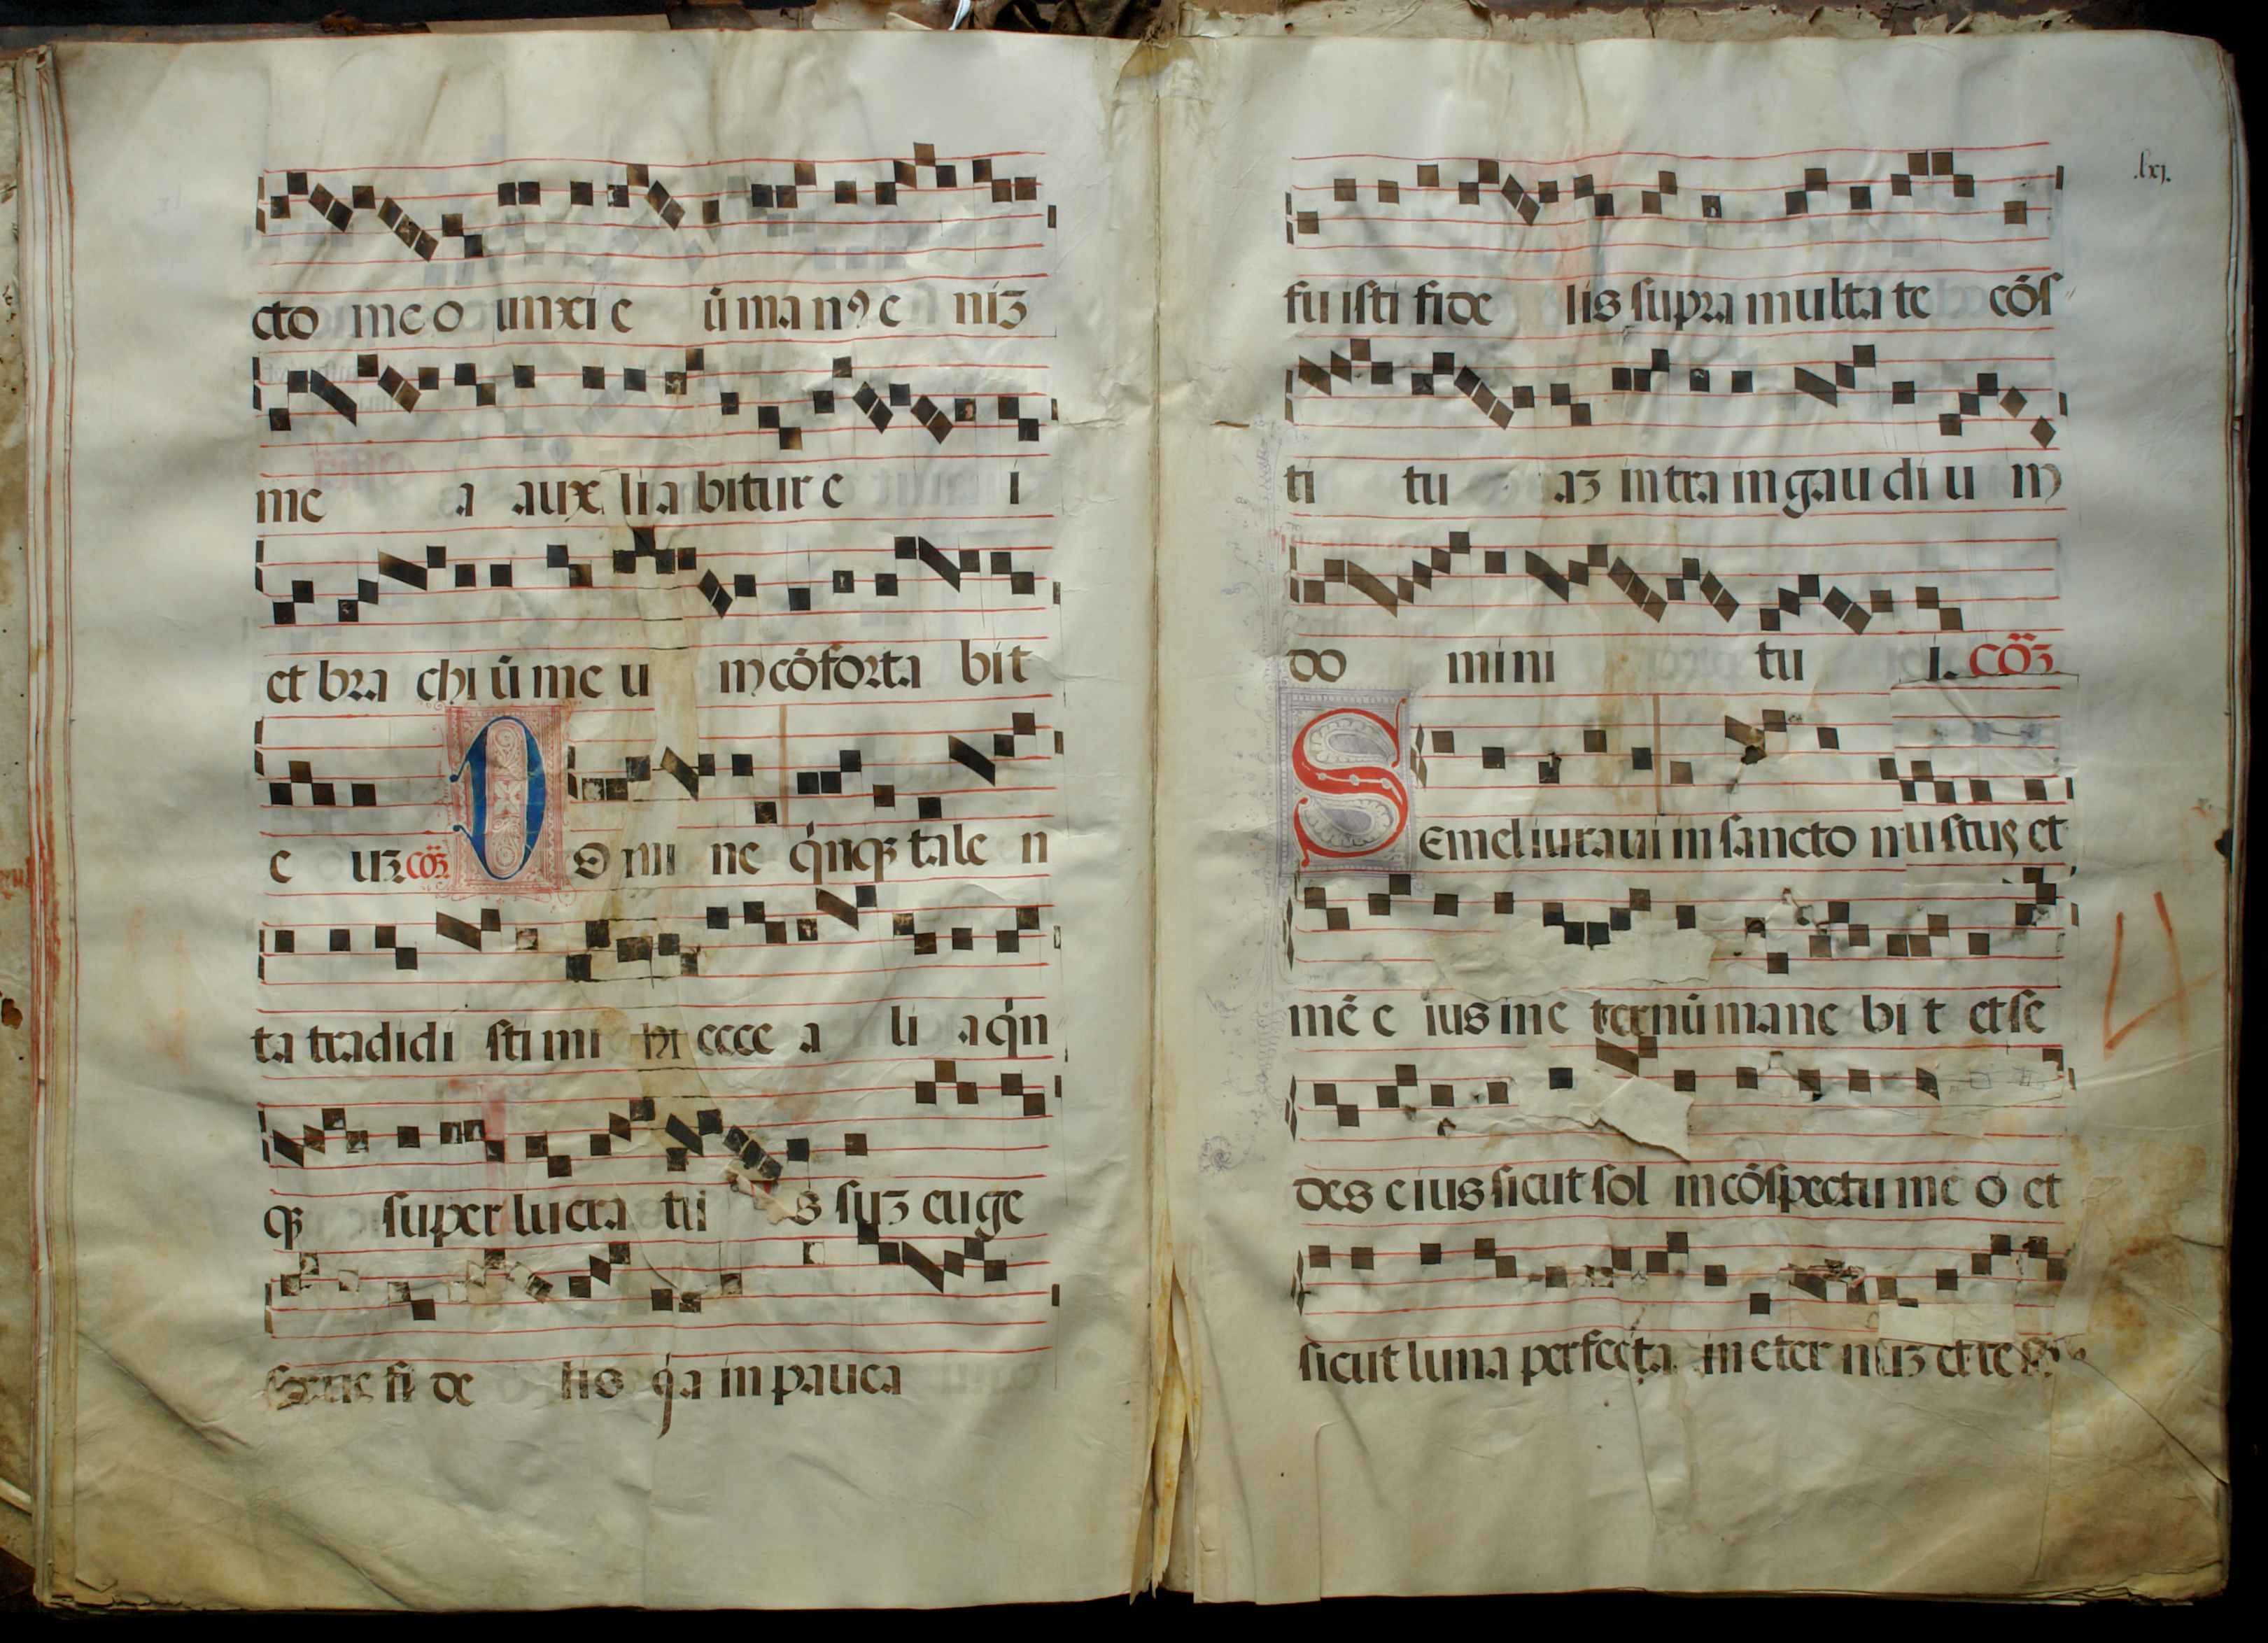 cto meo unxi e ũ man⁹ e niʒ
me a aux lia bitur e i
et bra chi ũ me u m cõforta bit
e uʒ. cõʒ. D O mi ne q̇nqʒ tale n
ta tradidi sti mi hi ecce a li a q̇n
qʒ super lucra tu s suʒ euge
fi de lis q̇a in pauca
.lxj.
fu isti fide lis supra multa te cõs
ti tu aʒ intra in gau di u m
do mini tu i. cõʒ
S Emel iuraui in sancto
mẽ e ius in e ternũ mane bi t et se
des e ius sicut sol in cõspectu me o et
sicut luna perfecta in eter nuʒ et te